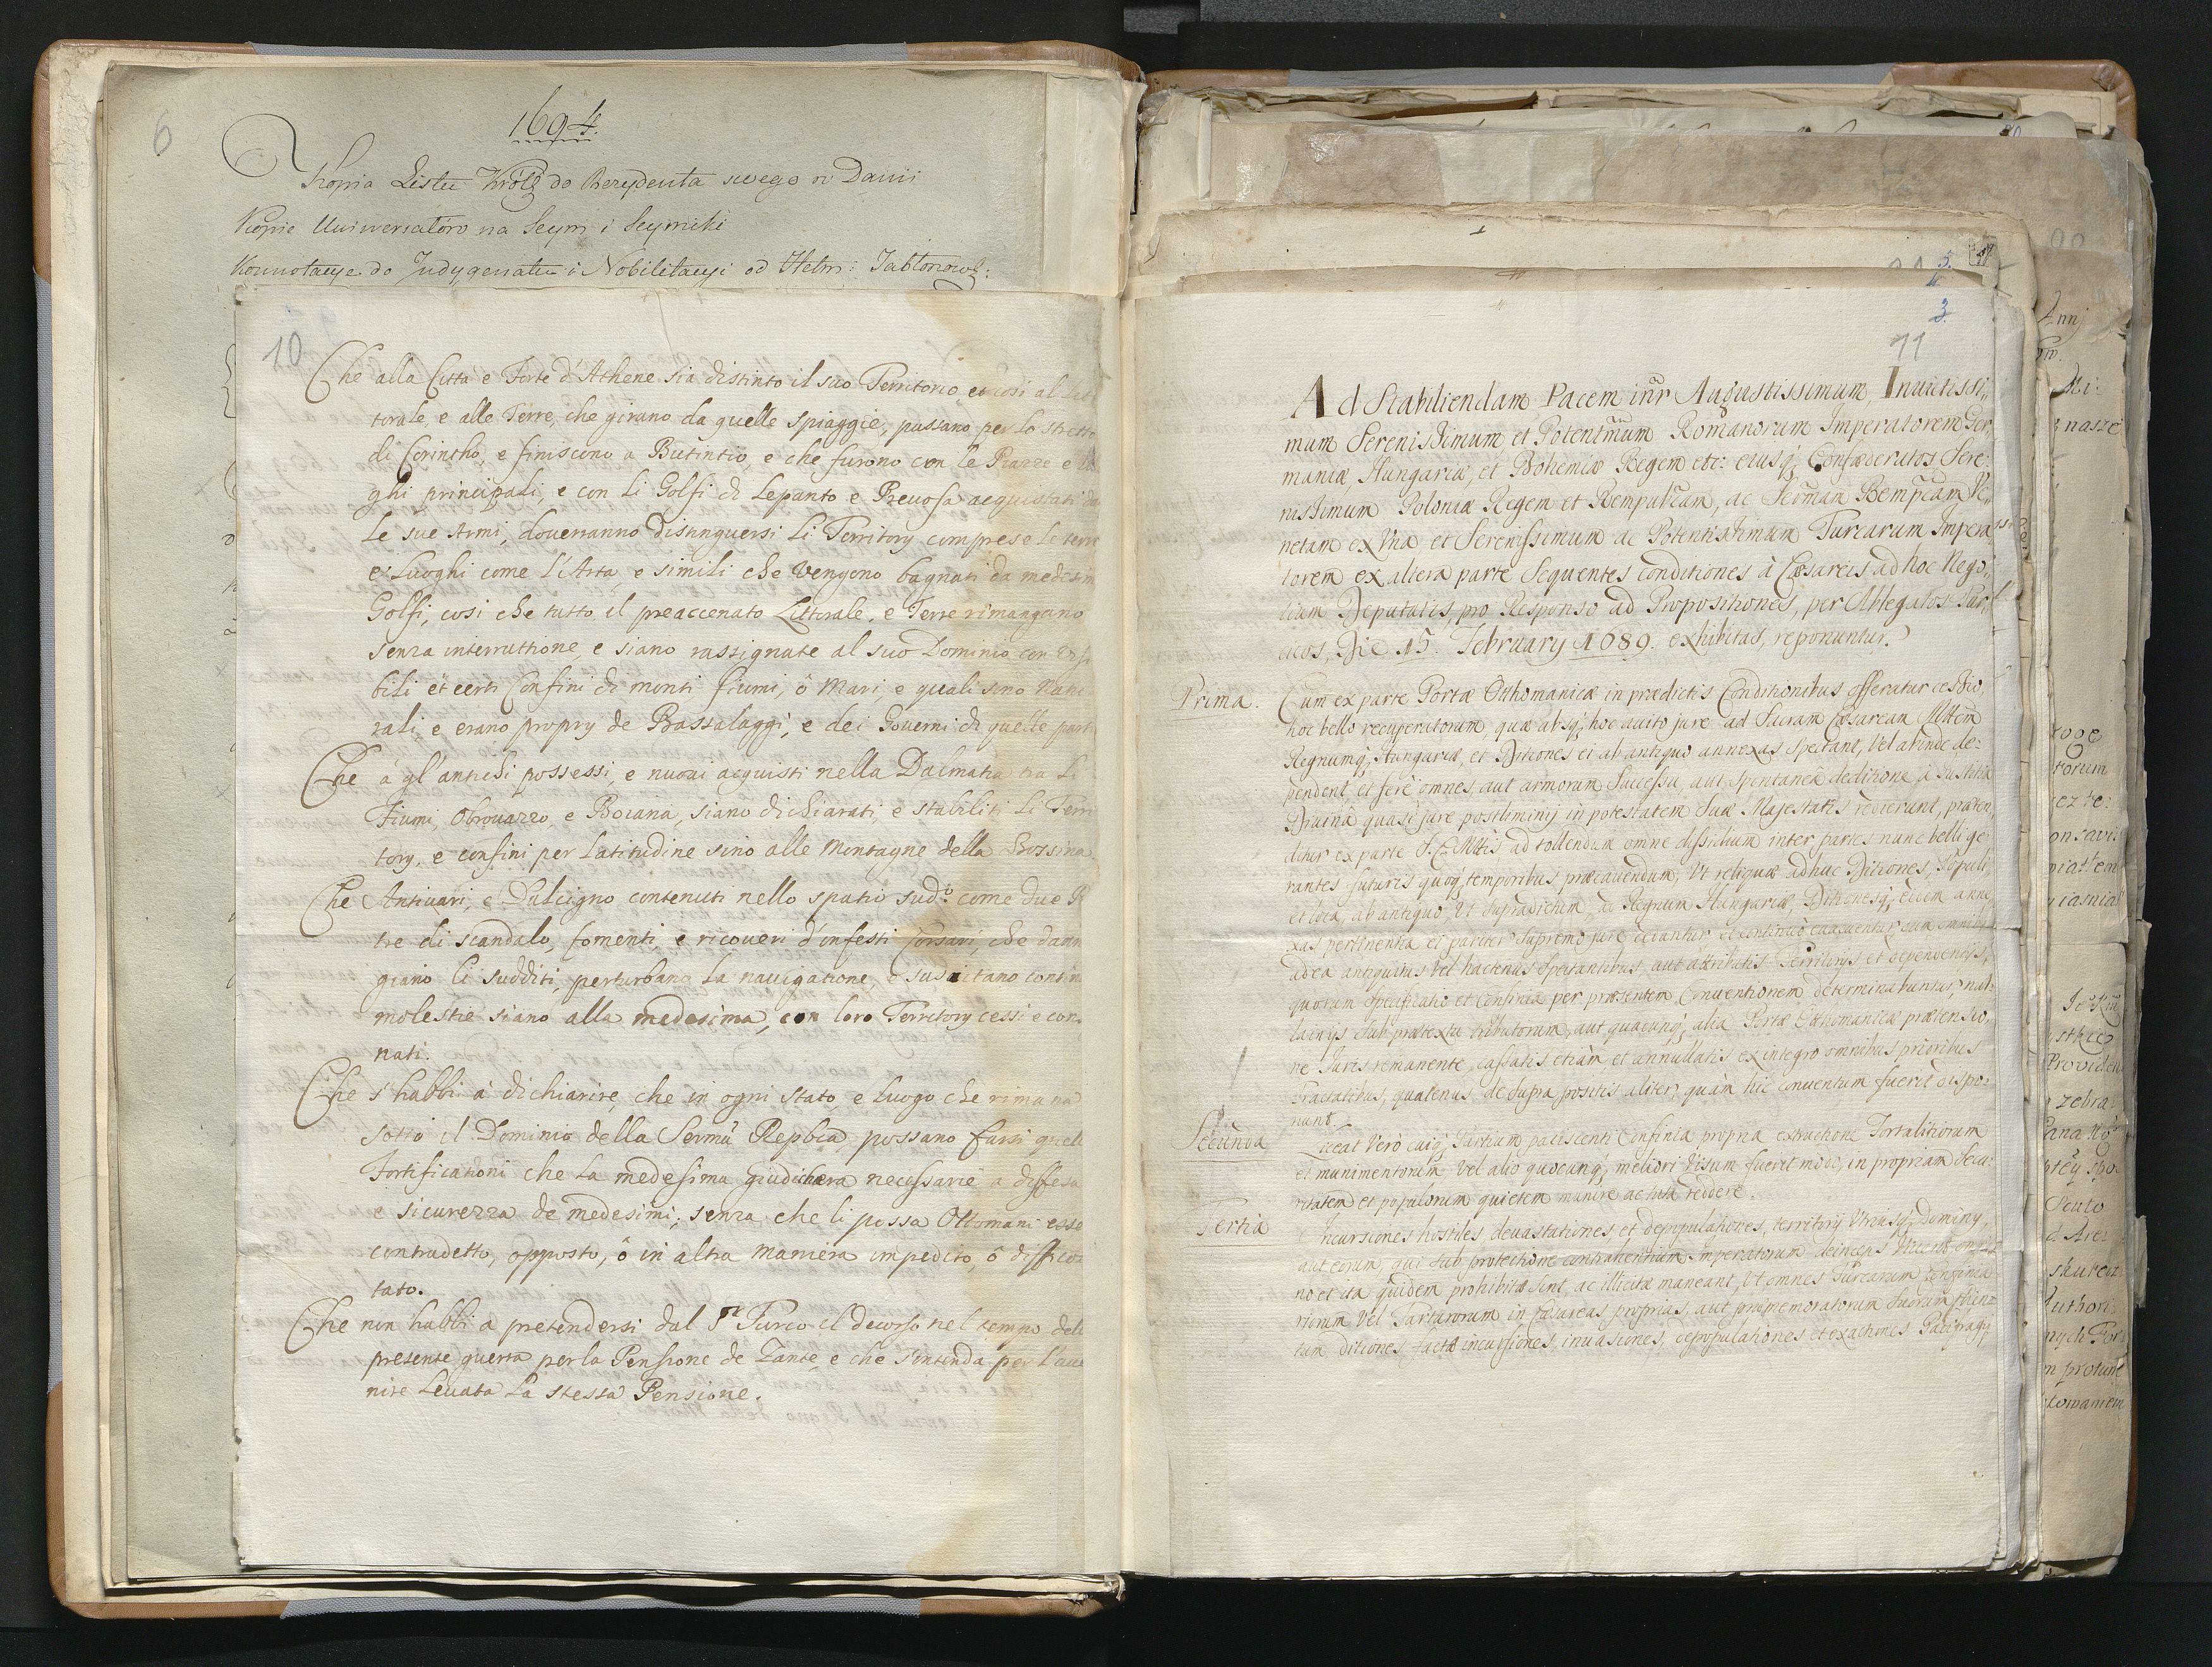 6
1694.
Kopia Listu Króla do Rezydenta swego w Danii
Kopie Uniwersałow na Seym i Seymiki
Konnotacye do Indygenatu i Nobilitacyi od Hetm: Jabłonows:
10
Che alla Città e Forte d'Athene sia distinto il suo Territorio, e così al
torale, e alle Terre, che girano da quelle spiaggie, passano per lo stretto
di Corintho, e finiscono a Butintio, e che furono con le Piazze e
ghi principali, e con li Golfi di Lepanto e Preuosa acquistati
le sue Armi, doueranno distinguersi li Territory comprese le terre
e Luoghi come l'Arta, e simili che vengono bagnati da medesim
Golfi, così che tutto il preaccenato Littorale, e Terre rimangano
senza interruttione, e siano rassignate al suo Dominio con
bili et certi Confini di monti fiumi, ò Mari, e quali sino
rali, e erano propry de Bassalaggi, e dei Gouerni di quelle part
Che à gl'antichi possessi, e nuoui acquisti nella Dalmatia tra li
Fiumi, Obrouazzo, e Boiana, siano dichiarati, e stabiliti li Terri
tory, e confini per Latitudine sino alle Montagne della Bossina.
Che Antiuari, e Dulcigno contenuti nello spatio sudo. come due
tre di scandalo, fomenti, e ricoueri d'infesti Corsari, che dann
giano li sudditi, perturbano la nauigatione, e suscitano contin
molestie siano alla medesima, con loro Territory cessi e con
nati.
Che s'habbi à dichiarire, che in ogni stato, e luogo che rimand
sotto il Dominio della Sermã Repbca, possano farsi quell
Fortificationi che la medesima giudichera necessarie a diffesa
e sicurezza de medesimi; senza che li possa Ottomani esse
contradetto, opposto, ò in altra maniera impedito, ò difficol
tato.
Che non habbi à pretendersi dal Sr Turco il decorso nel tempo dell
presente guerra per la Pensione de Zante, e che s'intenda per l'aue
nire leuata la stessa Pensione.
5.
4
3.
11
Ad Stabiliendam Pacem intr Augustissimum, Inuictissi„
mum Serenissimum et Potentm̃um Romanorum Imperatorem Ger„
maniæ, Hungariæ, et Bohemiæ Regem etc: eiusq; Confæderatos Sere„
nissimum Poloniæ Regem et Rempublicam, ac Serm̃am Rempcam Ve„
netam ex Vna et Serenissimum ac Potentissimum Turcarum Impera
torem ex altera parte Sequentes conditiones à Cæsareis ad hoc Nego„
tium Deputatis, pro Responso ad Propositiones, per Ablegatos Tur„
cicos, Die 15. February 1689. exhibitas, reponuntur.
Prima. Cum ex parte Portæ Otthomanicæ in prædictis Conditionibus offeratur cessio,
hoc bello recuperatorum, quæ absq; hoc auito jure ad Sacram Cæsaream Mttem
Regnumq; Hungariæ, et Ditiones ei ab antiquo annexas spectant, Vel abinde de„
pendent, et ferè omnes, aut armorum Successu, aut spontaneâ deditione, à Justitia
Diuinâ quasi jure postliminij in potestatem Suæ Majestatis redierunt, præten„
ditur ex parte S. C. Mttis, ad tollendum omne dissidium inter partes nunc belli ge„
rantes futuris quoq; temporibus præcauendum, Vt reliquæ adhuc Ditiones, Populi,
et loca, ab antiquo, Vt supradictum, ad Regnum Hungariæ, Ditionesq; eidem anne„
xas pertinentia ei pariter Supremo jure cedantur, et continuò euacuentur cum omnibus
ad ea antiquitus vel hactenus spectantibus, aut attributis Territorijs et dependentijs,
quorum specificatio et Confinia per præsentem Conuentionem determinabuntur, nul„
latenus sub prætextu tributorum, aut quacunq; alia Portæ Otthomanicæ prætensio„
ne Juris remanente, cassatis etiam et annullatis ex integro omnibus prioribus
Tractatibus, quatenus de supra positis aliter, quàm hic conuentum fuerit dispo„
nunt.
Secunda Liceat Verò cuiq; Partium paciscenti Confinia propria extructione Fortalitiorum
et munimentorum vel alio quocunq; meliori Visum fuerit modo, in propriam Secu„
ritatem et populorum quietem munire ac tuta reddere.
Tertia Incursiones hostiles, deuastationes, et depopulationes, territorij Vtriusq; Dominij,
aut eorum, qui sub protectione contrahentium Imperatorum deinceps
no et ita quidem prohibitæ sint, ac illicitæ maneant, Vt omnes Turcarum
Vel Tartarorum in Cæsareas proprias, aut præmemoratorum suorum
tum ditiones factæ incursiones, inuasiones, depopulationes et exactiones Pacifragij